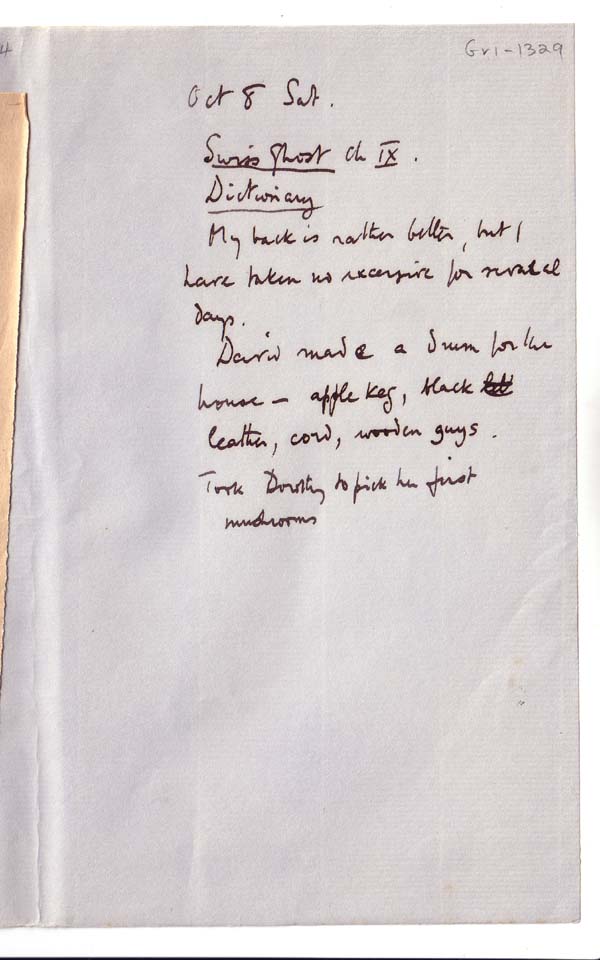 4
Gr1-1329
Oct 8 Sat.
Swiss Ghost ch IX.
Dictionary
My back is rather better, but I
have taken no excersise for several
days.
David made a drum for the
house – apple keg, black
leather, cord, wooden guys.
Took Dorothy to pick her first
mushrooms